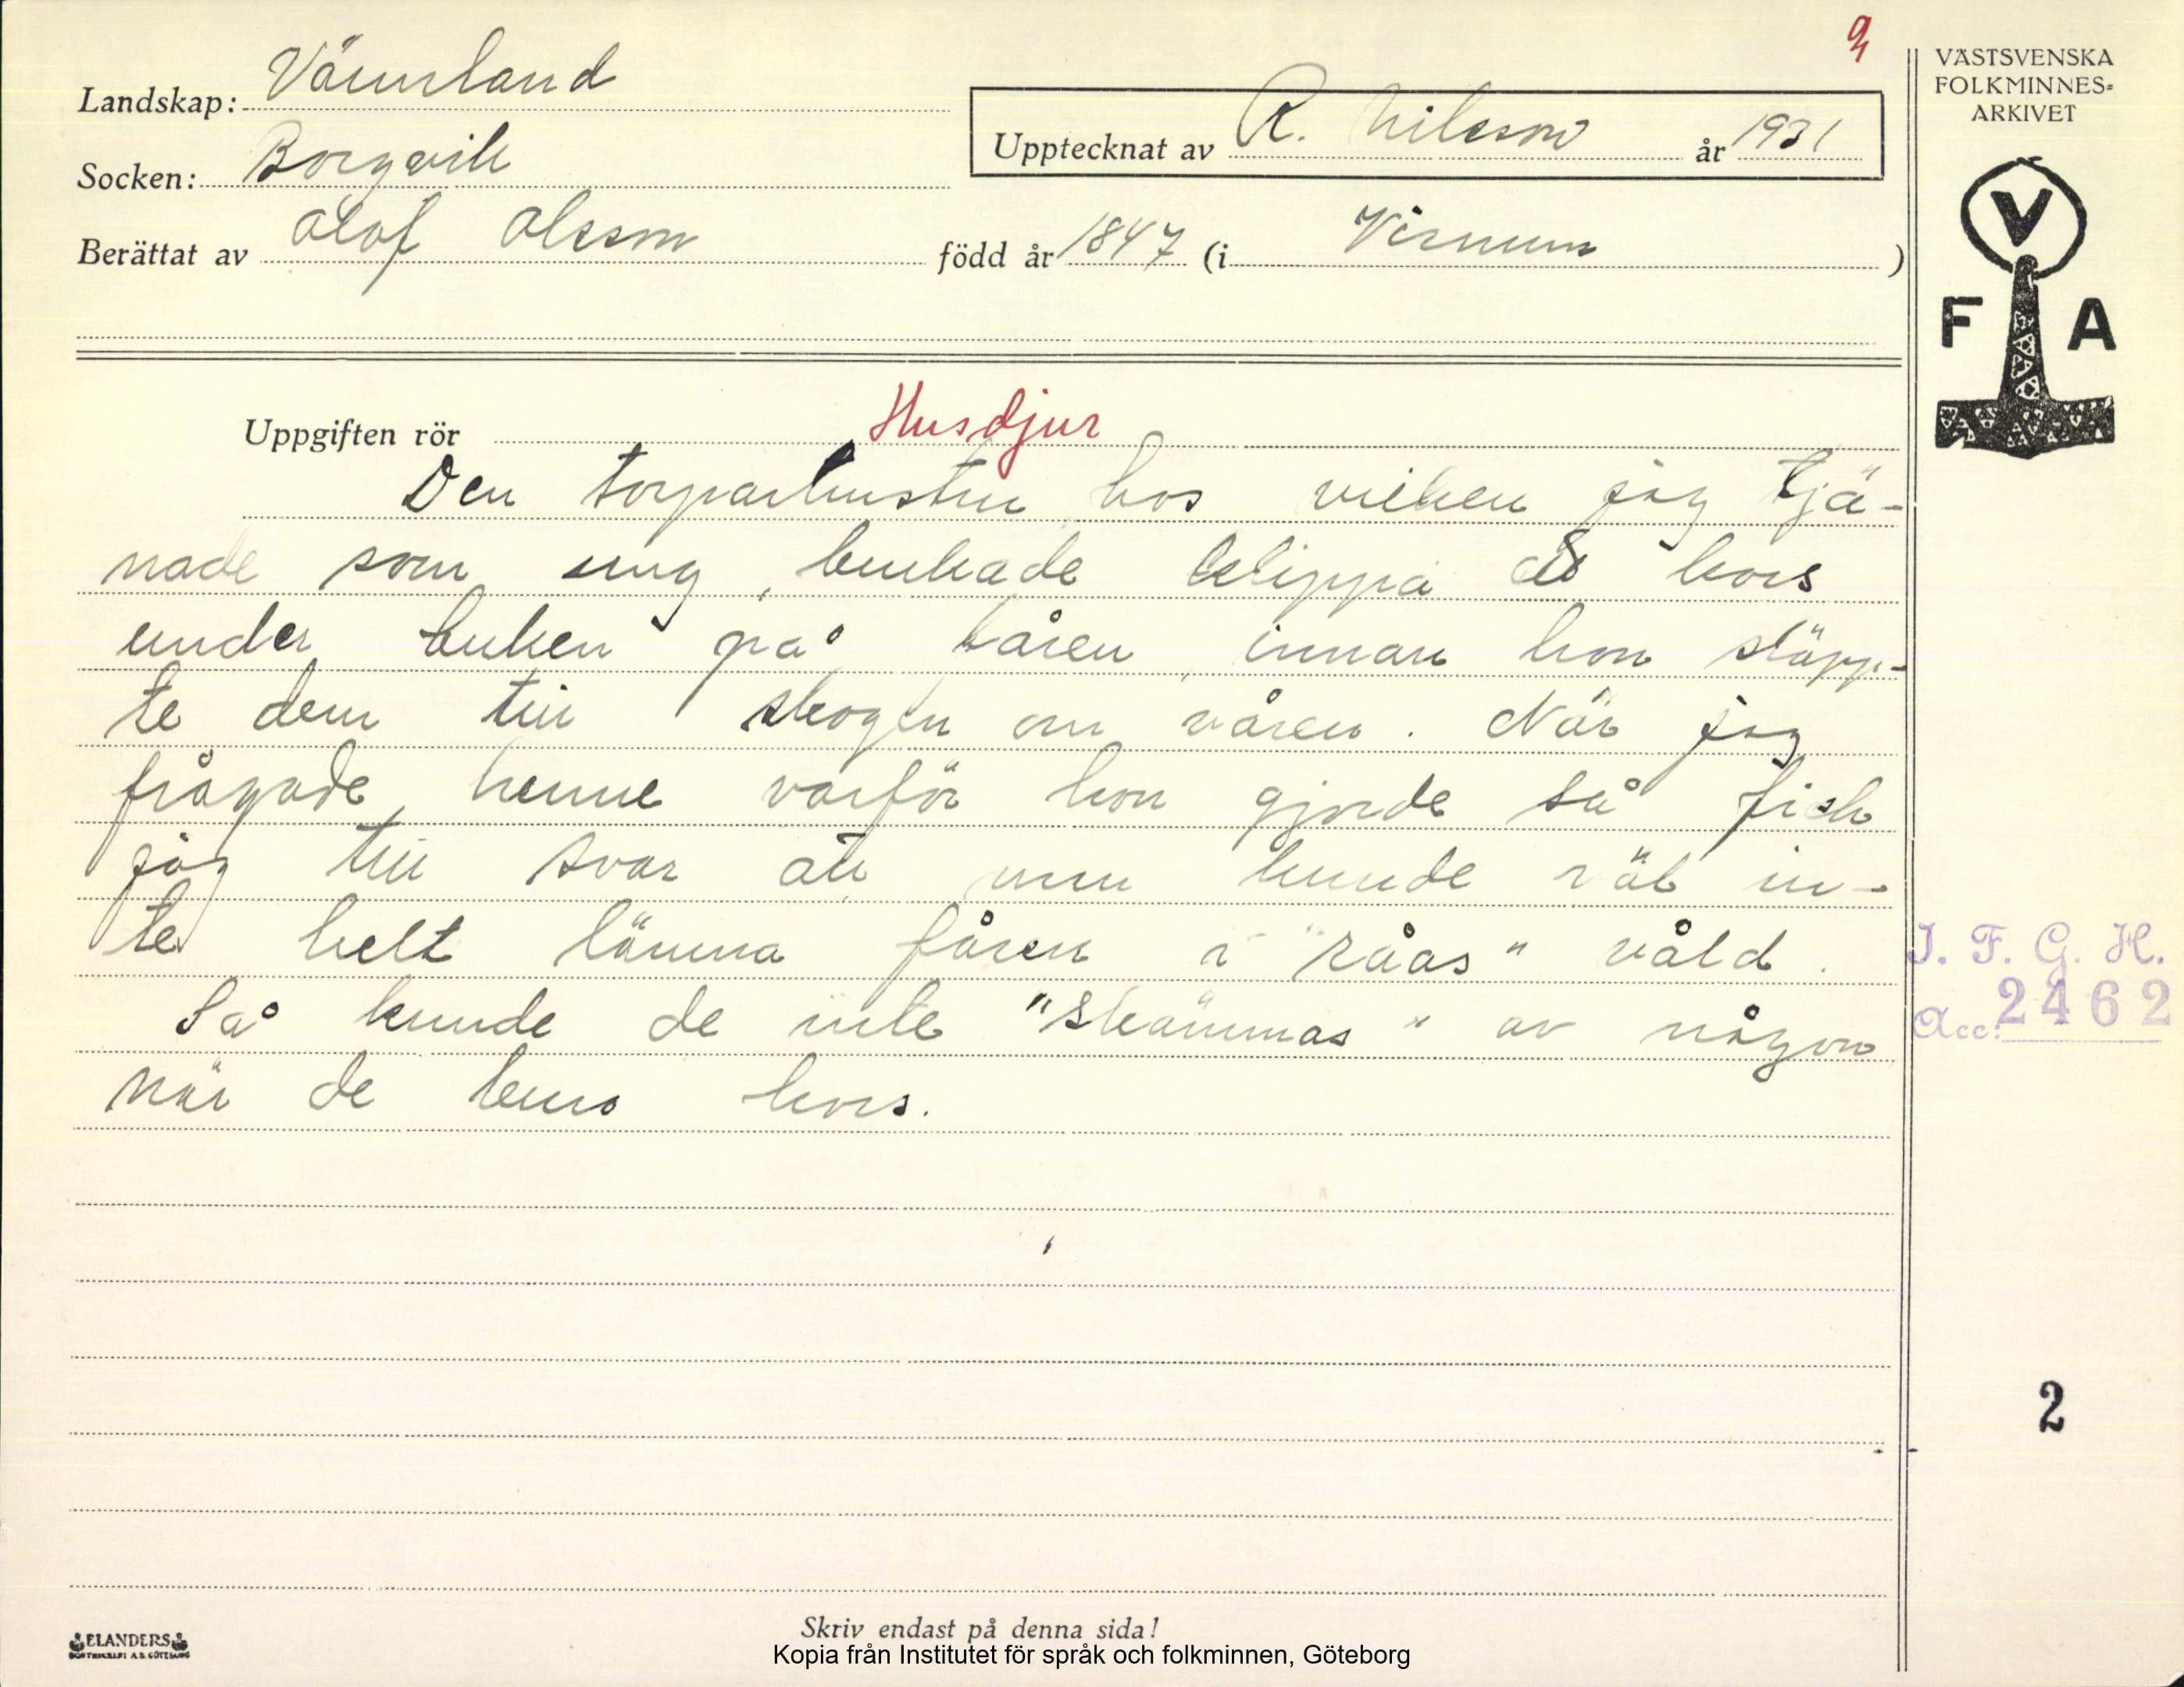 9
VÄSTSVENSKA
FOLKMINNES-
ARKIVET
Landskap: Värmland
Upptecknat av R. Nilsson år 1931
Socken: Borgvik
Berättat av Olof Olsson född år 1847 (i Visnum )
V
F A
Uppgiften rör Husdjur
Den torparhustru hos vilken jag tjä-
nade som ung, brukade klippa ett kors
under buken på fåren, innan hon släpp-
te dem till skogen om våren. När jag
frågade henne varför hon gjorde så fick
jag till svar att man kunde väl in-
te helt lämna fåren i "råas" våld.
Så kunde de inte "skämmas" av någon
när de hade kors.
I. F. G. H.
Acc: 2462
2
ELANDERS
BOKTRYCKERI A.B. GÖTEBORG
Skriv endast på denna sida!
Kopia från Institutet för språk och folkminnen, Göteborg